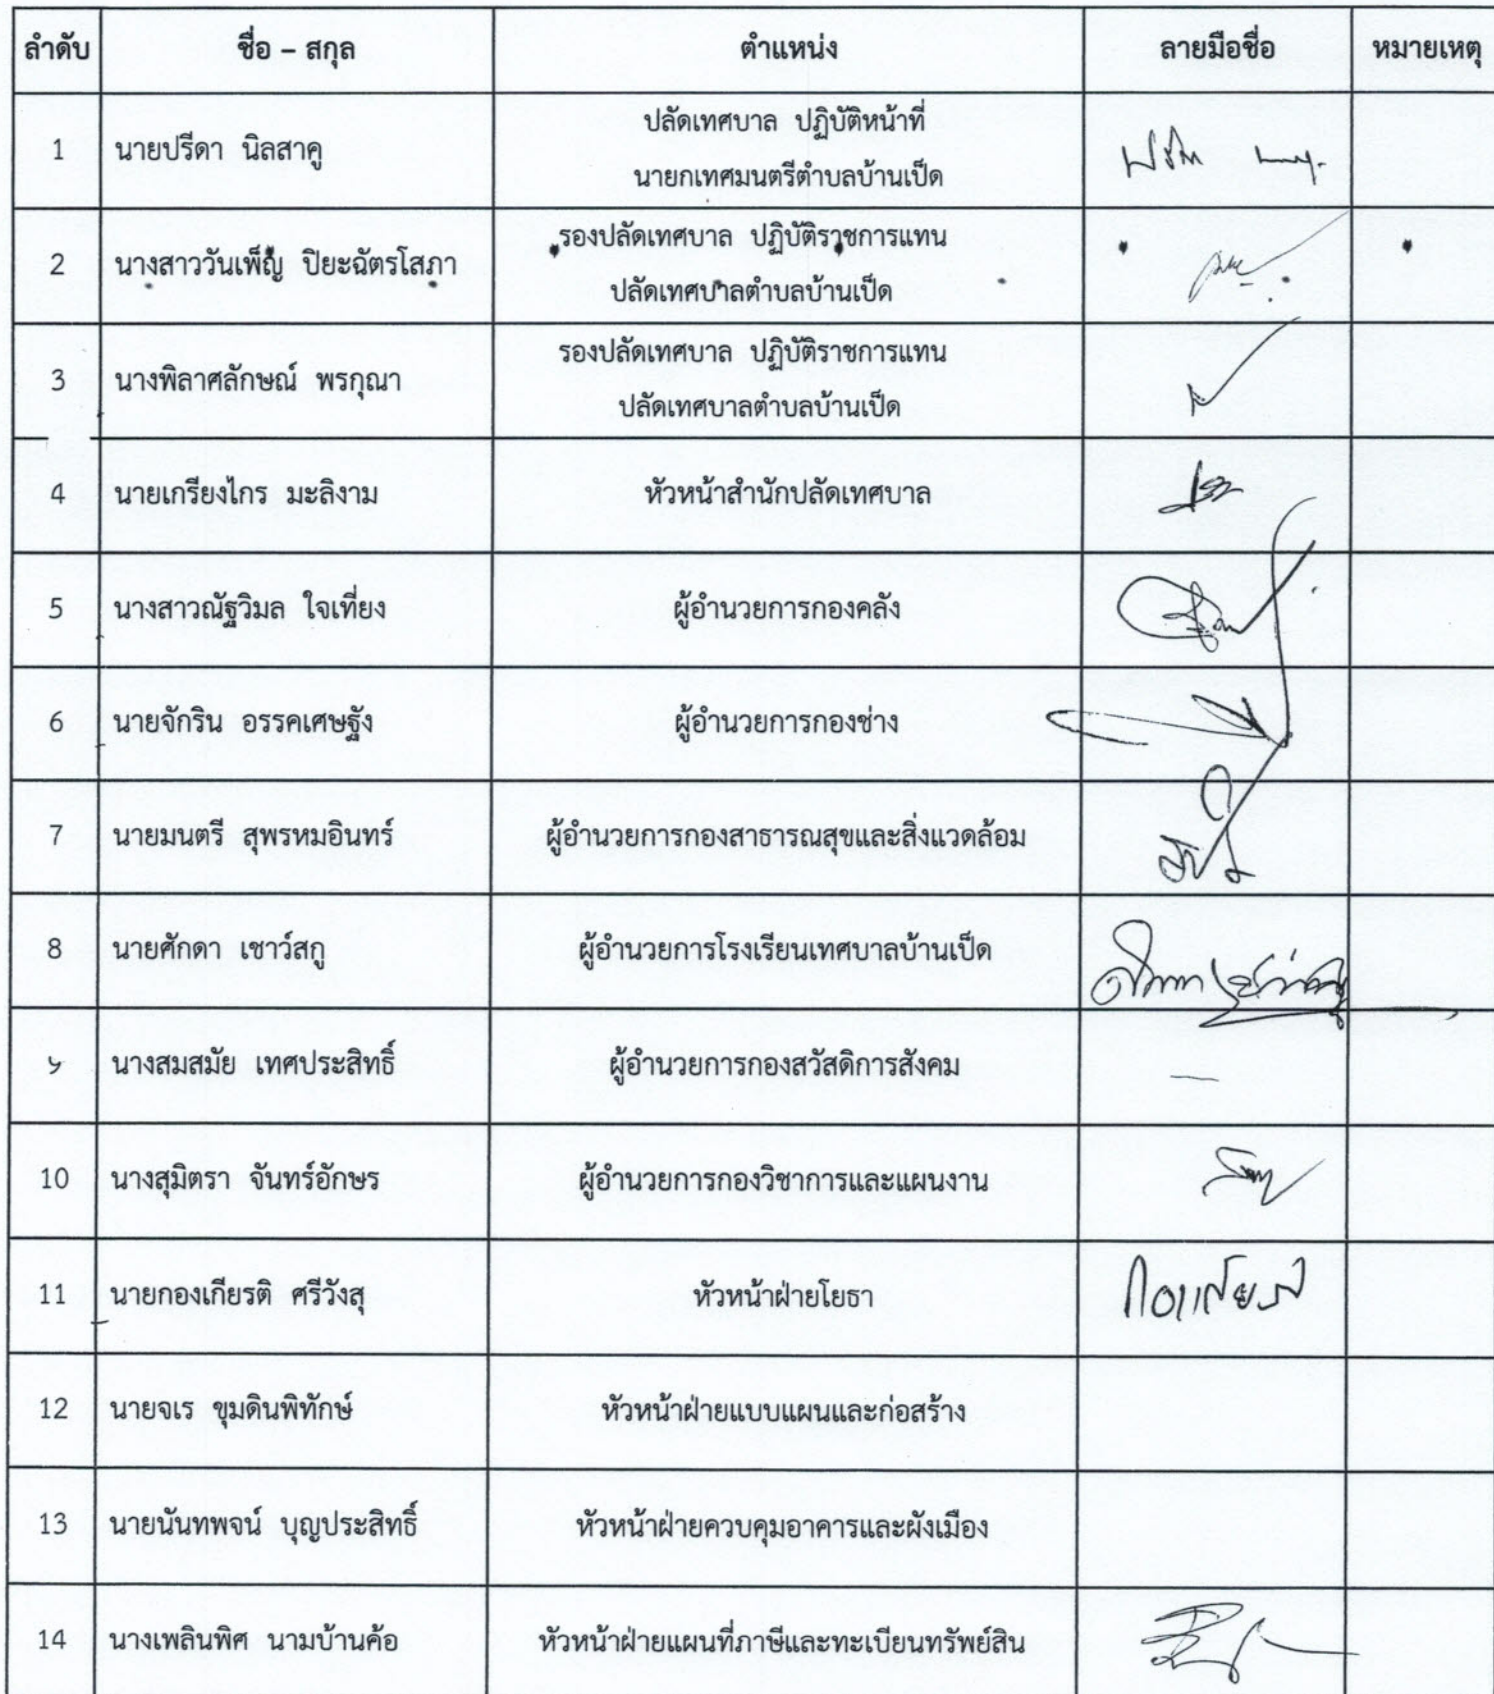 ลำดับ ชื่อ – สกุล ตำแหน่ง ลายมือชื่อ หมายเหตุ
1 นายปรีดา นิลสาคู ปลัดเทศบาล ปฏิบัติหน้าที่
นายกเทศมนตรีตำบลบ้านเป็ด
2 นางสาววันเพ็ญ ปิยะฉัตรโสภา รองปลัดเทศบาล ปฏิบัติราชการแทน
ปลัดเทศบาลตำบลบ้านเป็ด
3 นางพิลาศลักษณ์ พรกุณา รองปลัดเทศบาล ปฏิบัติราชการแทน
ปลัดเทศบาลตำบลบ้านเป็ด
4 นายเกรียงไกร มะลิงาม หัวหน้าสำนักปลัดเทศบาล
5 นางสาวณัฐวิมล ใจเที่ยง ผู้อำนวยการกองคลัง
6 นายจักริน อรรคเศษฐัง ผู้อำนวยการกองช่าง
7 นายมนตรี สุพรหมอินทร์ ผู้อำนวยการกองสาธารณสุขและสิ่งแวดล้อม
8 นายศักดา เชาว์สกู ผู้อำนวยการโรงเรียนเทศบาลบ้านเป็ด
9 นางสมสมัย เทศประสิทธิ์ ผู้อำนวยการกองสวัสดิการสังคม –
10 นางสุมิตรา จันทร์อักษร ผู้อำนวยการกองวิชาการและแผนงาน
11 นายกองเกียรติ ศรีวังสุ หัวหน้าฝ่ายโยธา
12 นายจเร ขุมดินพิทักษ์ หัวหน้าฝ่ายแบบแผนและก่อสร้าง
13 นายนันทพจน์ บุญประสิทธิ์ หัวหน้าฝ่ายควบคุมอาคารและผังเมือง
14 นางเพลินพิศ นามบ้านค้อ หัวหน้าฝ่ายแผนที่ภาษีและทะเบียนทรัพย์สิน